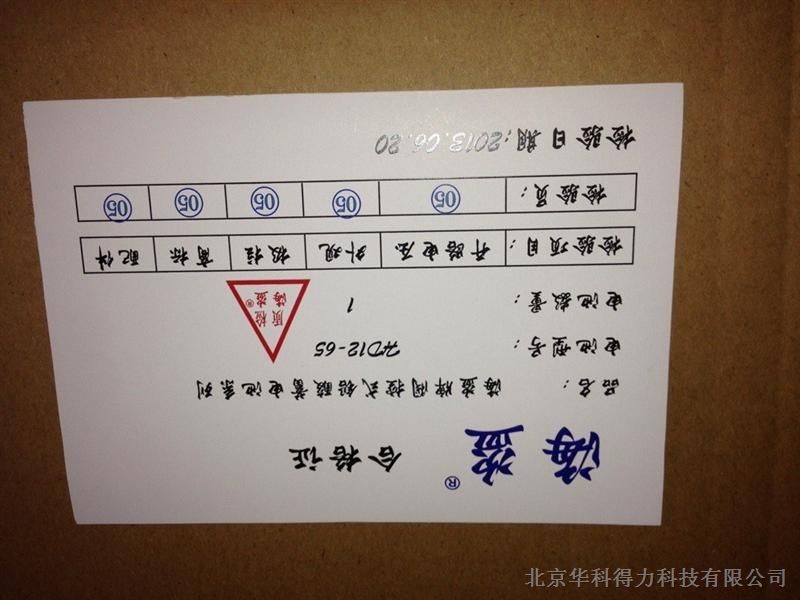 海盗® 合格证
品名： 海盗牌阀控式铅酸蓄电池系列
电池型号： HD12-65
电池数量： 1
质检
海盗®
检验项目： 开路电压 外观 极柱 商标 配件
检验员： 05 05 05 05 05
检验日期：2013.06.20
北京华科得力科技有限公司